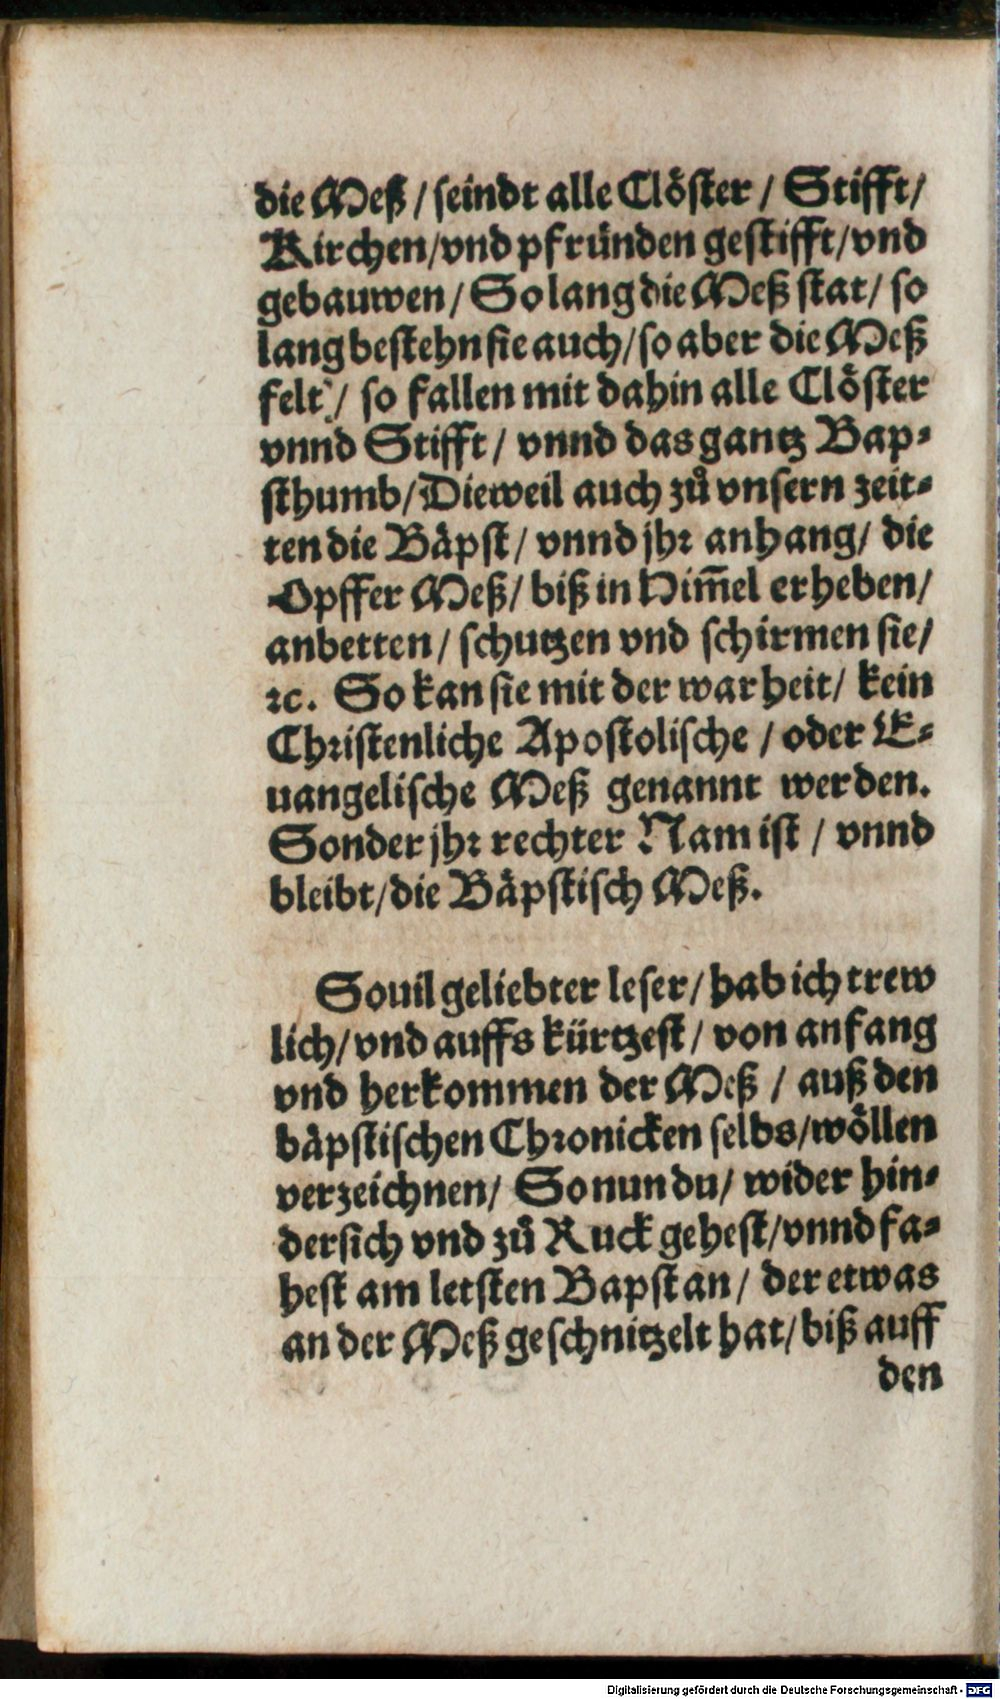 die Meß / seindt alle Clöster / Stifft /
Kirchen / vnd pfründen gestifft / vnd
gebauwen / So lang die Meß stat / so
lang bestehn sie auch / so aber die Meß
felt / so fallen mit dahin alle Clöster
vnnd Stifft / vnnd das gantz Bap⸗
sthumb / Dieweil auch zů vnsern zeit⸗
ten die Bäpst / vnnd jhr anhang / die
Opffer Meß / biß in Him̄el erheben /
anbetten / schutzen vnd schirmen sie /
ꝛc. So kan sie mit der warheit / kein
Christenliche Apostolische / oder E⸗
uangelische Meß genannt werden.
Sonder jhr rechter Nam ist / vnnd
bleibt / die Bäpstisch Meß.
Souil geliebter leser / hab ich trew
lich / vnd auffs kürtzest / von anfang
vnd herkommen der Meß / auß den
bäpstischen Chronicken selbs / wöllen
verzeichnen / So nun du / wider hin⸗
dersich vnd zů Ruck gehest / vnnd fa⸗
hest am letsten Bapst an / der etwas
an der Meß geschnitzelt hat / biß auff
den
Digitalisierung gefördert durch die Deutsche Forschungsgemeinschaft - DFG